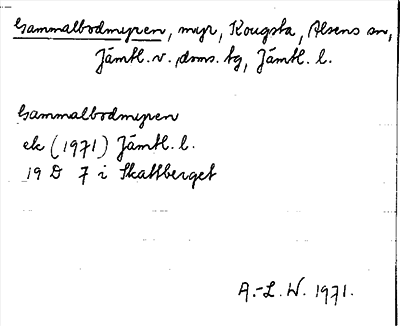 Gammalbodmyren, myr, Kougsta, Alsens sn,
Jämtl. v. doms. tg, Jämtl. l.
Gammalbodmyren
ek (1971) Jämtl. l.
19 D 7 i Skattberget
A.-L. W. 1971.